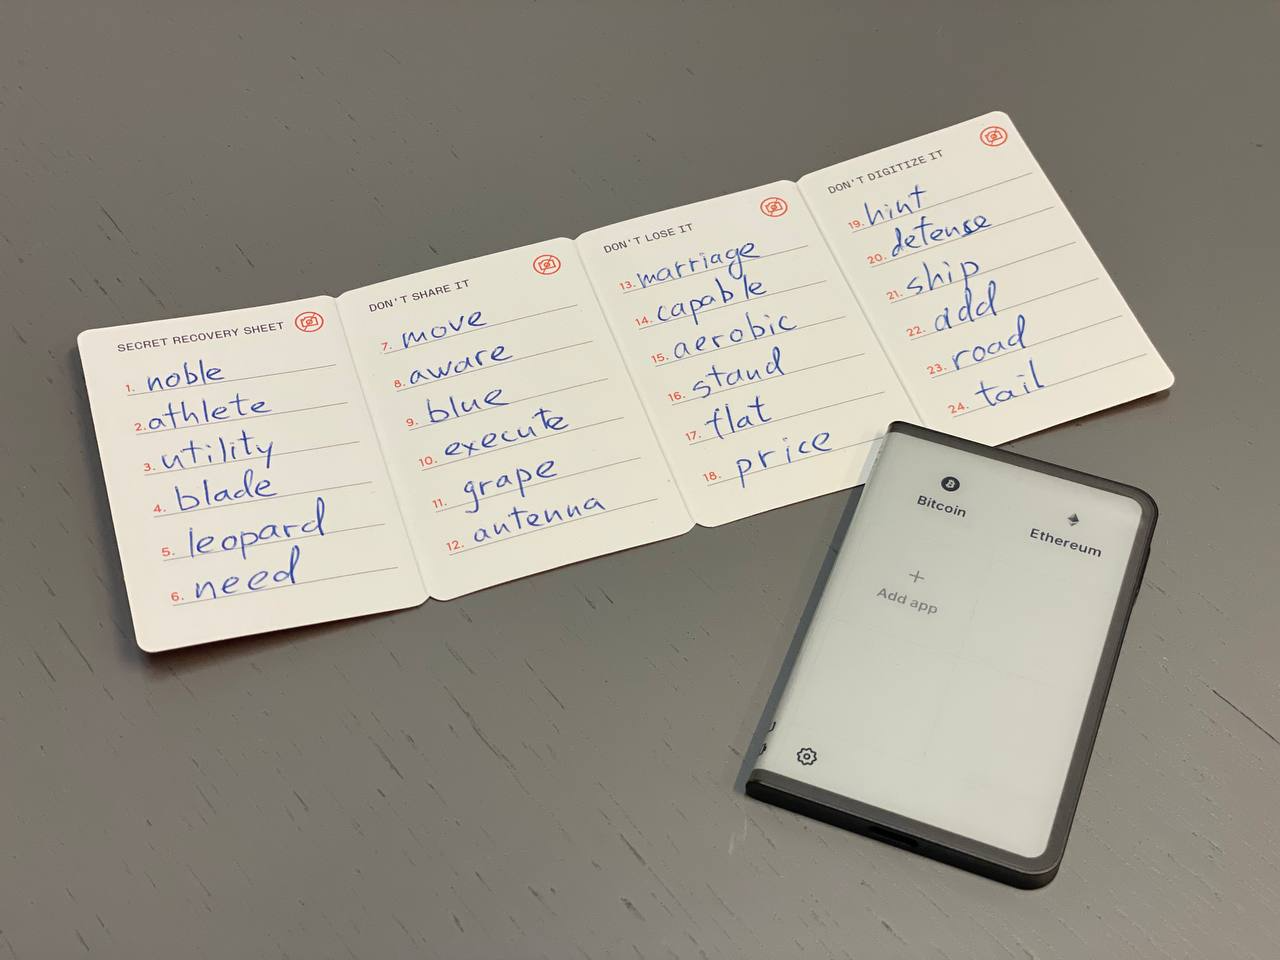 SECRET RECOVERY SHEET
1. noble
2. athlete
3. utility
4. blade
5. leopard
6. need
DON'T SHARE IT
7. move
8. aware
9. blue
10. execute
11. grape
12. antenna
DON'T LOSE IT
13. marriage
14. capable
15. aerobic
16. stand
17. flat
18. price
DON'T DIGITIZE IT
19. hint
20. defense
21. ship
22. add
23. road
24. tail
Bitcoin
Ethereum
Add app